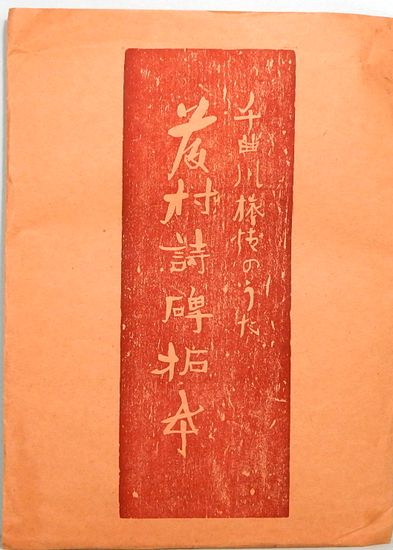 千曲川旅情のうた
藤村詩碑拓本